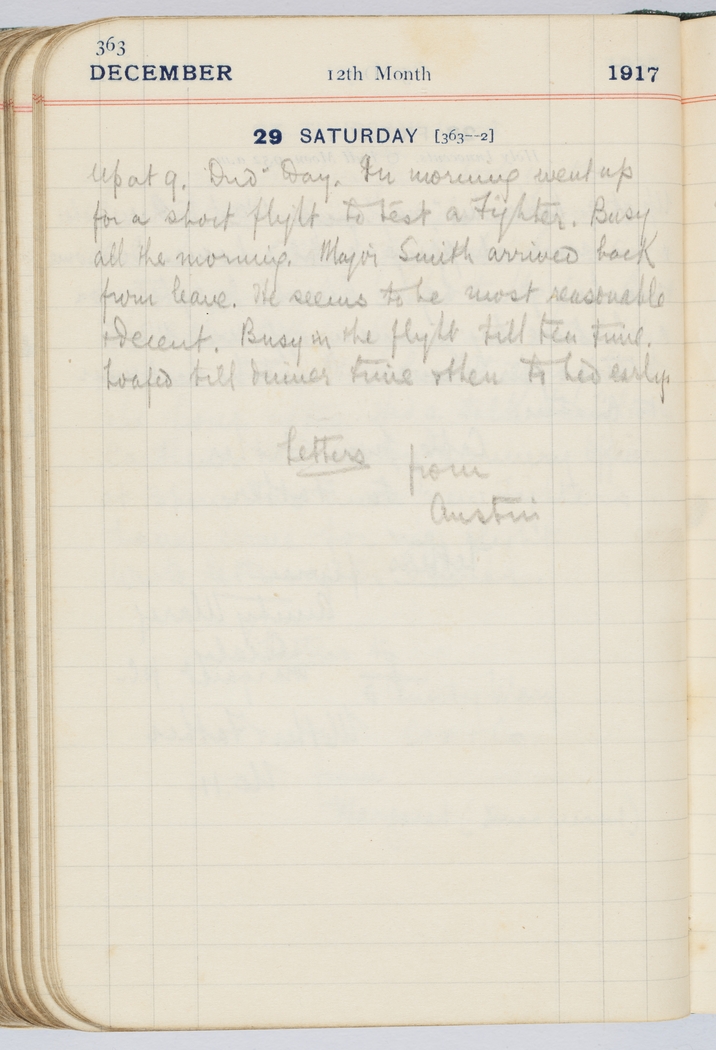 363
DECEMBER 12th Month 1917
29 SATURDAY [363—2]
Up at 9. Dud Day. In morning went up
for a short flight to test a Fighter. Busy
all the morning. Major Smith arrived back
from leave. He seems to be most reasonable
+ decent. Busy in the flight till tea time.
Loafed till dinner time + then to bed early.
Letters from
Austin